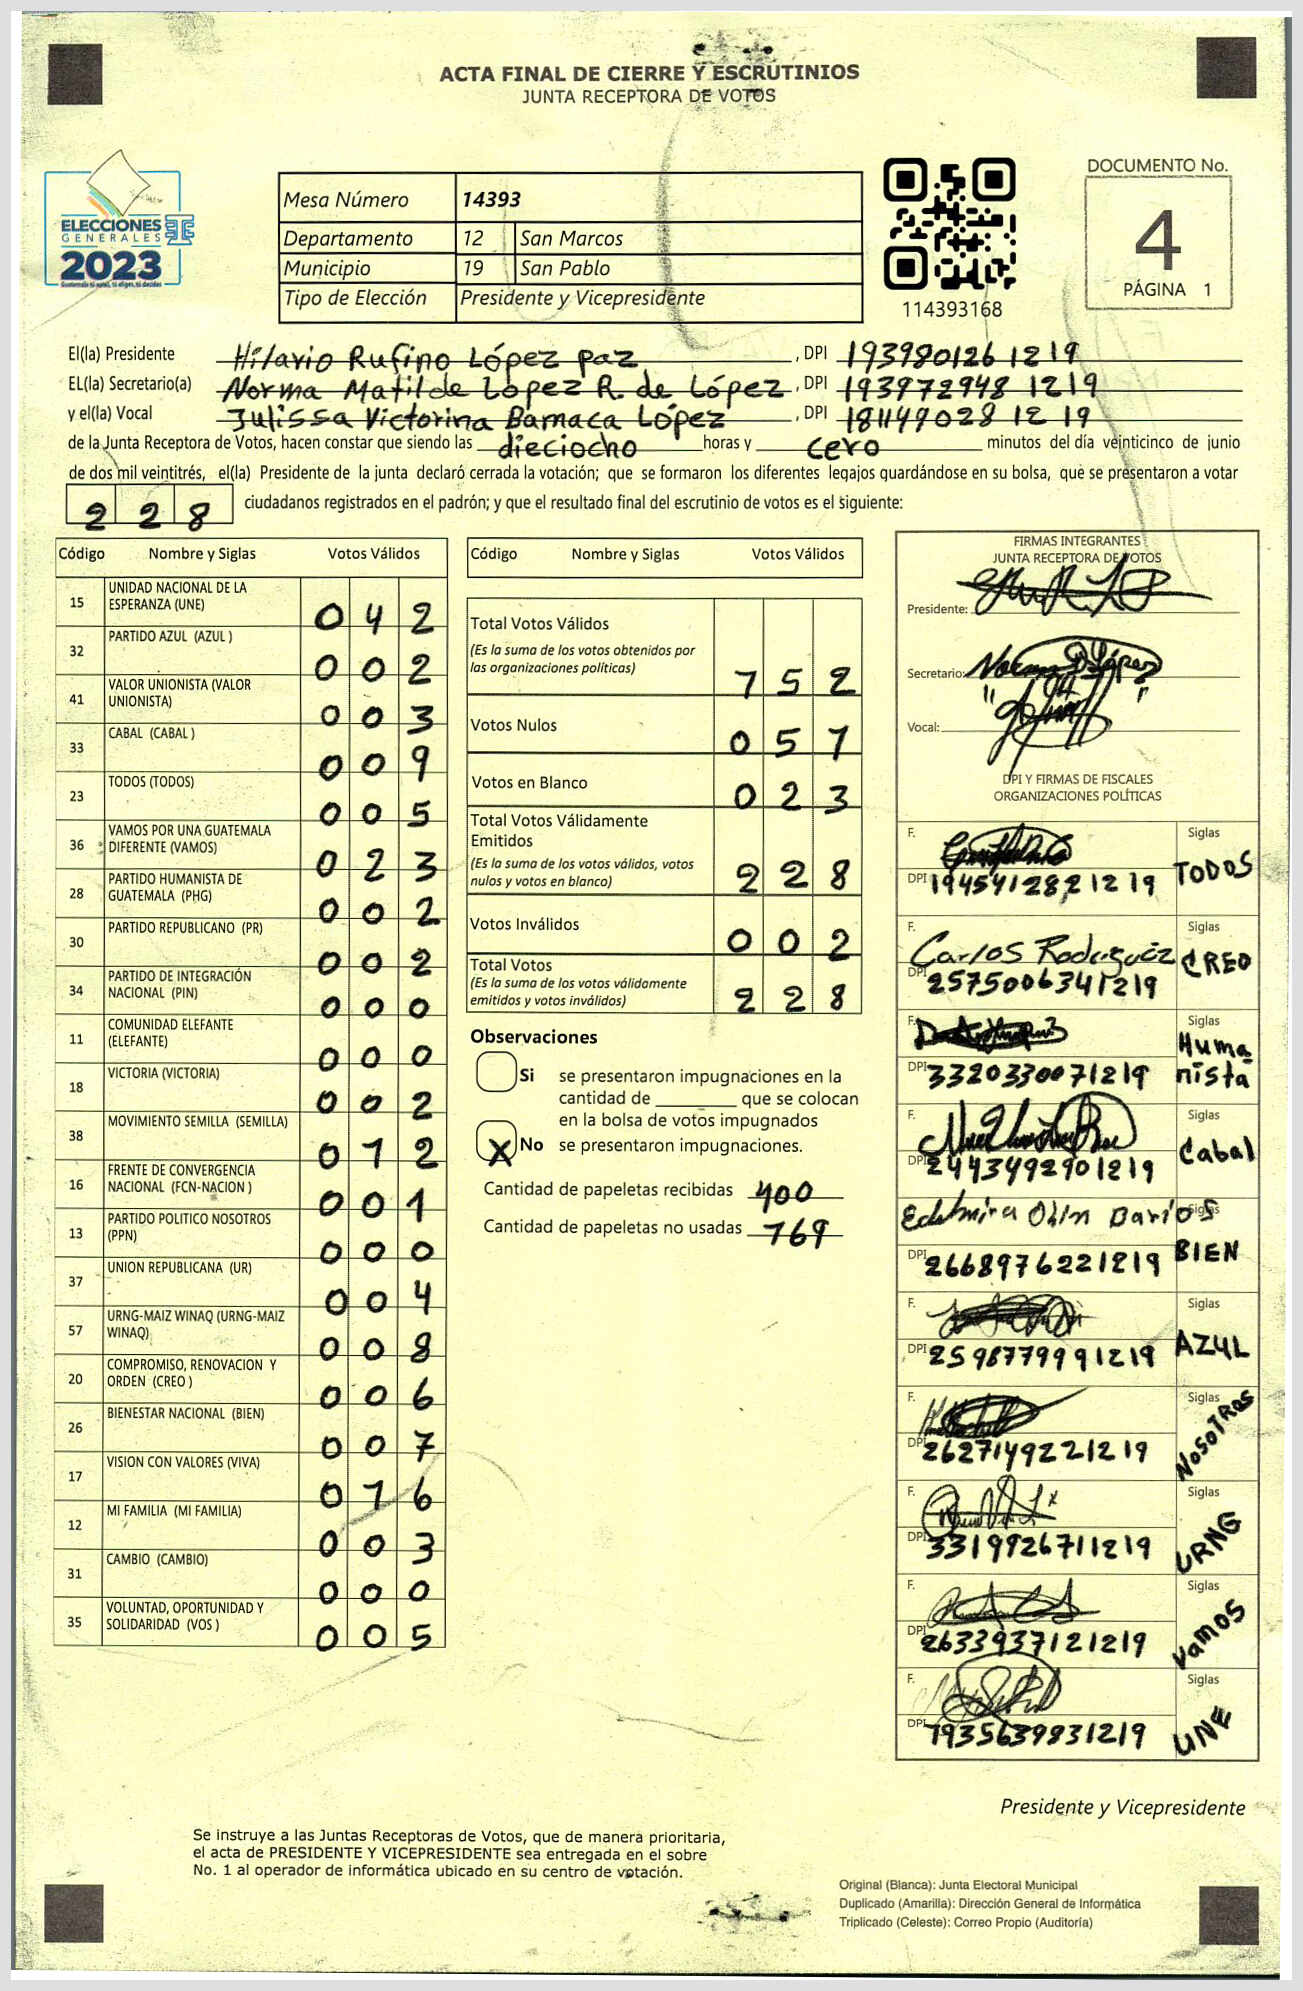 ACTA FINAL DE CIERRE Y ESCRUTINIOS
JUNTA RECEPTORA DE VOTOS
ELECCIONES
GENERALES
2023
Mesa Número 14393
Departamento 12 San Marcos
Municipio 19 San Pablo
Tipo de Elección Presidente y Vicepresidente
114393168
DOCUMENTO No.
4
PÁGINA 1
El(la) Presidente Hilario Rufino López paz, DPI 193980126 1219
EL(la) Secretario(a) Norma Matilde López R. de López, DPI 193972948 1219
y el(la) Vocal Julissa Victorina Bamaca López, DPI 181149028 12 19
de la Junta Receptora de Votos, hacen constar que siendo las dieciocho horas y cero minutos del día veinticinco de junio
de dos mil veintitrés, el(la) Presidente de la junta declaró cerrada la votación; que se formaron los diferentes legajos guardándose en su bolsa, que se presentaron a votar
2 2 8 ciudadanos registrados en el padrón; y que el resultado final del escrutinio de votos es el siguiente:
Código Nombre y Siglas Votos Válidos
15 UNIDAD NACIONAL DE LA
ESPERANZA (UNE) 0 4 2
32 PARTIDO AZUL (AZUL ) 0 0 2
41 VALOR UNIONISTA (VALOR
UNIONISTA) 0 0 3
33 CABAL (CABAL ) 0 0 9
23 TODOS (TODOS) 0 0 5
36 VAMOS POR UNA GUATEMALA
DIFERENTE (VAMOS) 0 2 3
28 PARTIDO HUMANISTA DE
GUATEMALA (PHG) 0 0 2
30 PARTIDO REPUBLICANO (PR) 0 0 2
34 PARTIDO DE INTEGRACIÓN
NACIONAL (PIN) 0 0 0
11 COMUNIDAD ELEFANTE
(ELEFANTE) 0 0 0
18 VICTORIA (VICTORIA) 0 0 2
38 MOVIMIENTO SEMILLA (SEMILLA) 0 1 2
16 FRENTE DE CONVERGENCIA
NACIONAL (FCN-NACION ) 0 0 1
13 PARTIDO POLITICO NOSOTROS
(PPN) 0 0 0
37 UNION REPUBLICANA (UR) 0 0 4
57 URNG-MAIZ WINAQ (URNG-MAIZ
WINAQ) 0 0 8
20 COMPROMISO, RENOVACION Y
ORDEN (CREO ) 0 0 6
26 BIENESTAR NACIONAL (BIEN) 0 0 7
17 VISION CON VALORES (VIVA) 0 1 6
12 MI FAMILIA (MI FAMILIA) 0 0 3
31 CAMBIO (CAMBIO) 0 0 0
35 VOLUNTAD, OPORTUNIDAD Y
SOLIDARIDAD (VOS ) 0 0 5
Código Nombre y Siglas Votos Válidos
Total Votos Válidos
(Es la suma de los votos obtenidos por
las organizaciones políticas) 1 5 2
Votos Nulos 0 5 1
Votos en Blanco 0 2 3
Total Votos Válidamente
Emitidos
(Es la suma de los votos válidos, votos
nulos y votos en blanco) 2 2 8
Votos Inválidos 0 0 2
Total Votos
(Es la suma de los votos válidamente
emitidos y votos inválidos) 2 2 8
Observaciones
Si se presentaron impugnaciones en la
cantidad de ________ que se colocan
en la bolsa de votos impugnados
X No se presentaron impugnaciones.
Cantidad de papeletas recibidas 400
Cantidad de papeletas no usadas 169
FIRMAS INTEGRANTES
JUNTA RECEPTORA DE VOTOS
Presidente:
Secretario: Norma D López
Vocal:
DPI Y FIRMAS DE FISCALES
ORGANIZACIONES POLÍTICAS
F. Siglas
DPI 1945412821219 TODOS
F. Carlos Rodriguez Siglas
DPI 2575006341219 CREO
F. Siglas
DPI 3320330071219 Huma
nista
F. Siglas
DPI 2443492901219 Cabal
Siglas
DPI 2668976221219 BIEN
F. Siglas
DPI 2598779991219 AZUL
F. Siglas
DPI 2627149221219 NOSOTROS
F. Siglas
DPI 3319926711219 URNG
F. Siglas
DPI 2633937121219 Vamos
F. Siglas
DPI 1935639831219 UNE
Presidente y Vicepresidente
Se instruye a las Juntas Receptoras de Votos, que de manera prioritaria,
el acta de PRESIDENTE Y VICEPRESIDENTE sea entregada en el sobre
No. 1 al operador de informática ubicado en su centro de votación.
Original (Blanca): Junta Electoral Municipal
Duplicado (Amarilla): Dirección General de Informática
Triplicado (Celeste): Correo Propio (Auditoría)